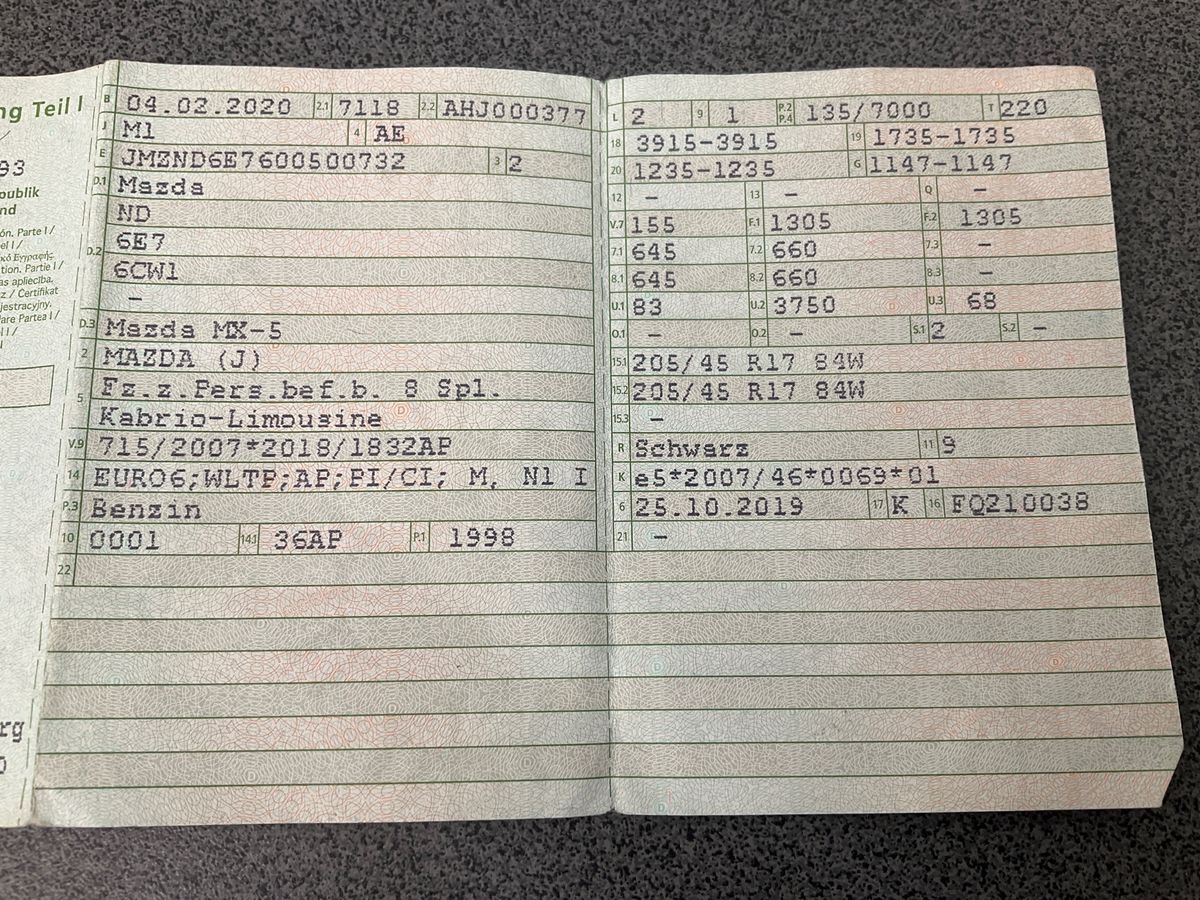 ng Teil I
/
93
publik
nd
ón. Parte I /
el I /
κό Εγγραφής.
tion. Partie I /
as apliecība.
z / Ċertifikat
jestracyjny,
are Partea I /
l I /
I
rg
0
B 04.02.2020 2.1 7118 2.2 AHJ000377
J M1 4 AE
E JMZND6E7600500732 3 2
D.1 Mazda
ND
D.2 6E7
6CW1
–
D.3 Mazda MX-5
2 MAZDA (J)
5 Fz.z.Pers.bef.b. 8 Spl.
Kabrio-Limousine
V.9 715/2007*2018/1832AP
14 EURO6;WLTP;AP;PI/CI; M, N1 I
P.3 Benzin
10 0001 14.1 36AP P.1 1998
22
L 2 9 1 P.2 P.4 135/7000 T 220
18 3915-3915 19 1735-1735
20 1235-1235 G 1147-1147
12 – 13 – Q –
V.7 155 F.1 1305 F.2 1305
7.1 645 7.2 660 7.3 –
8.1 645 8.2 660 8.3 –
U.1 83 U.2 3750 U.3 68
O.1 – O.2 – S.1 2 S.2 –
15.1 205/45 R17 84W
15.2 205/45 R17 84W
15.3 –
R Schwarz 11 9
K e5*2007/46*0069*01
6 25.10.2019 17 K 16 FQ210038
21 –